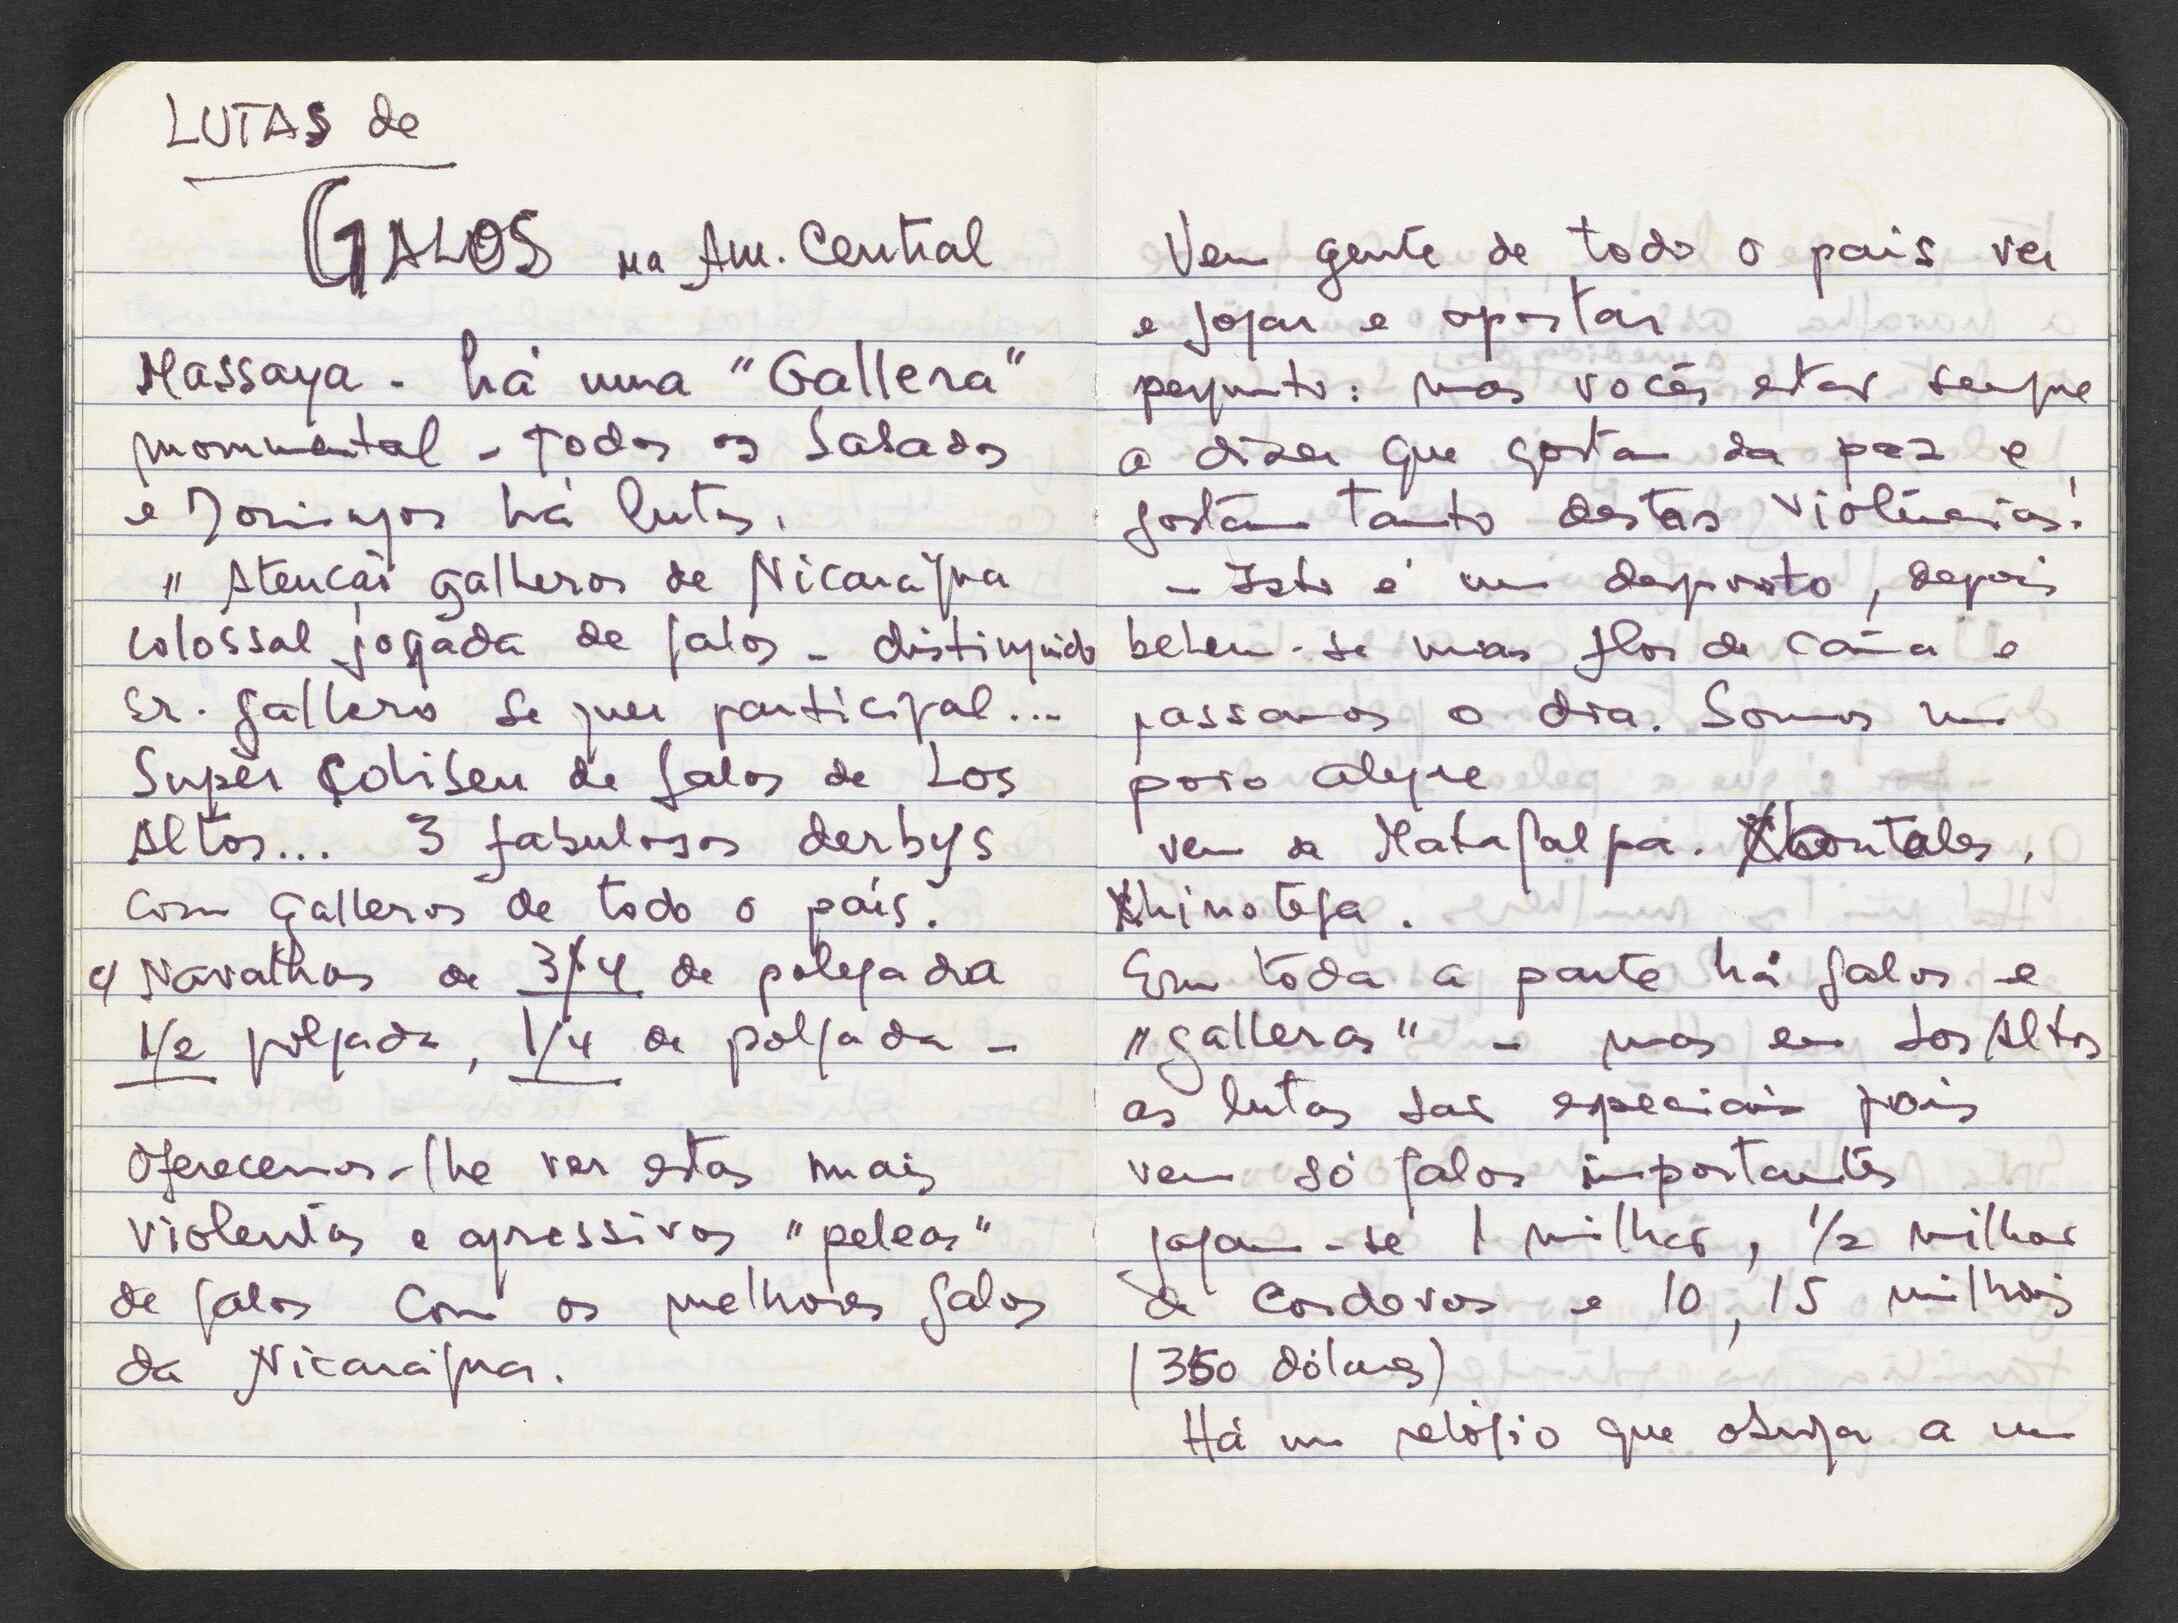 LUTAS de
GALOS na Am. Central
Massaya - há uma "Gallera"
monumental - Todos os Sabados
e Domingos há lutas.
"Atenção galleros de Nicarágua
colossal jogada de galos - distinguido
Sr. gallero se quer participal...
Super Coliseu de galos de Los
Altos... 3 fabulosos derbys
com galleros de todo o país.
c/ Navalhas de 3/4 de polegada
1/2 polgada, 1/4 de polgada -
Oferecemos-lhe ver estas mais
violentas e agressivas "peleas"
de galos com os melhores galos
da Nicarágua.
Vem gente de todo o pais ver
e jogar e apostar
pergunto: mas vocês estão sempre
a dizer que gostam da paz e
gostam tanto destas violências!
- Isto é um desporto, depois
bebem-se umas flor de caña e
passamos o dia. Somos um
povo alegre
vem de Matagalpa. Chontales,
Khinotega.
Em toda a parte há galos e
"galleras" - mas em Los Altos
as lutas são especiais pois
vem só galos importantes
jogam-se 1 milhão, 1/2 milhão
de cordovas e 10, 15 milhões
(350 dólares)
Há um relógio que obriga a um